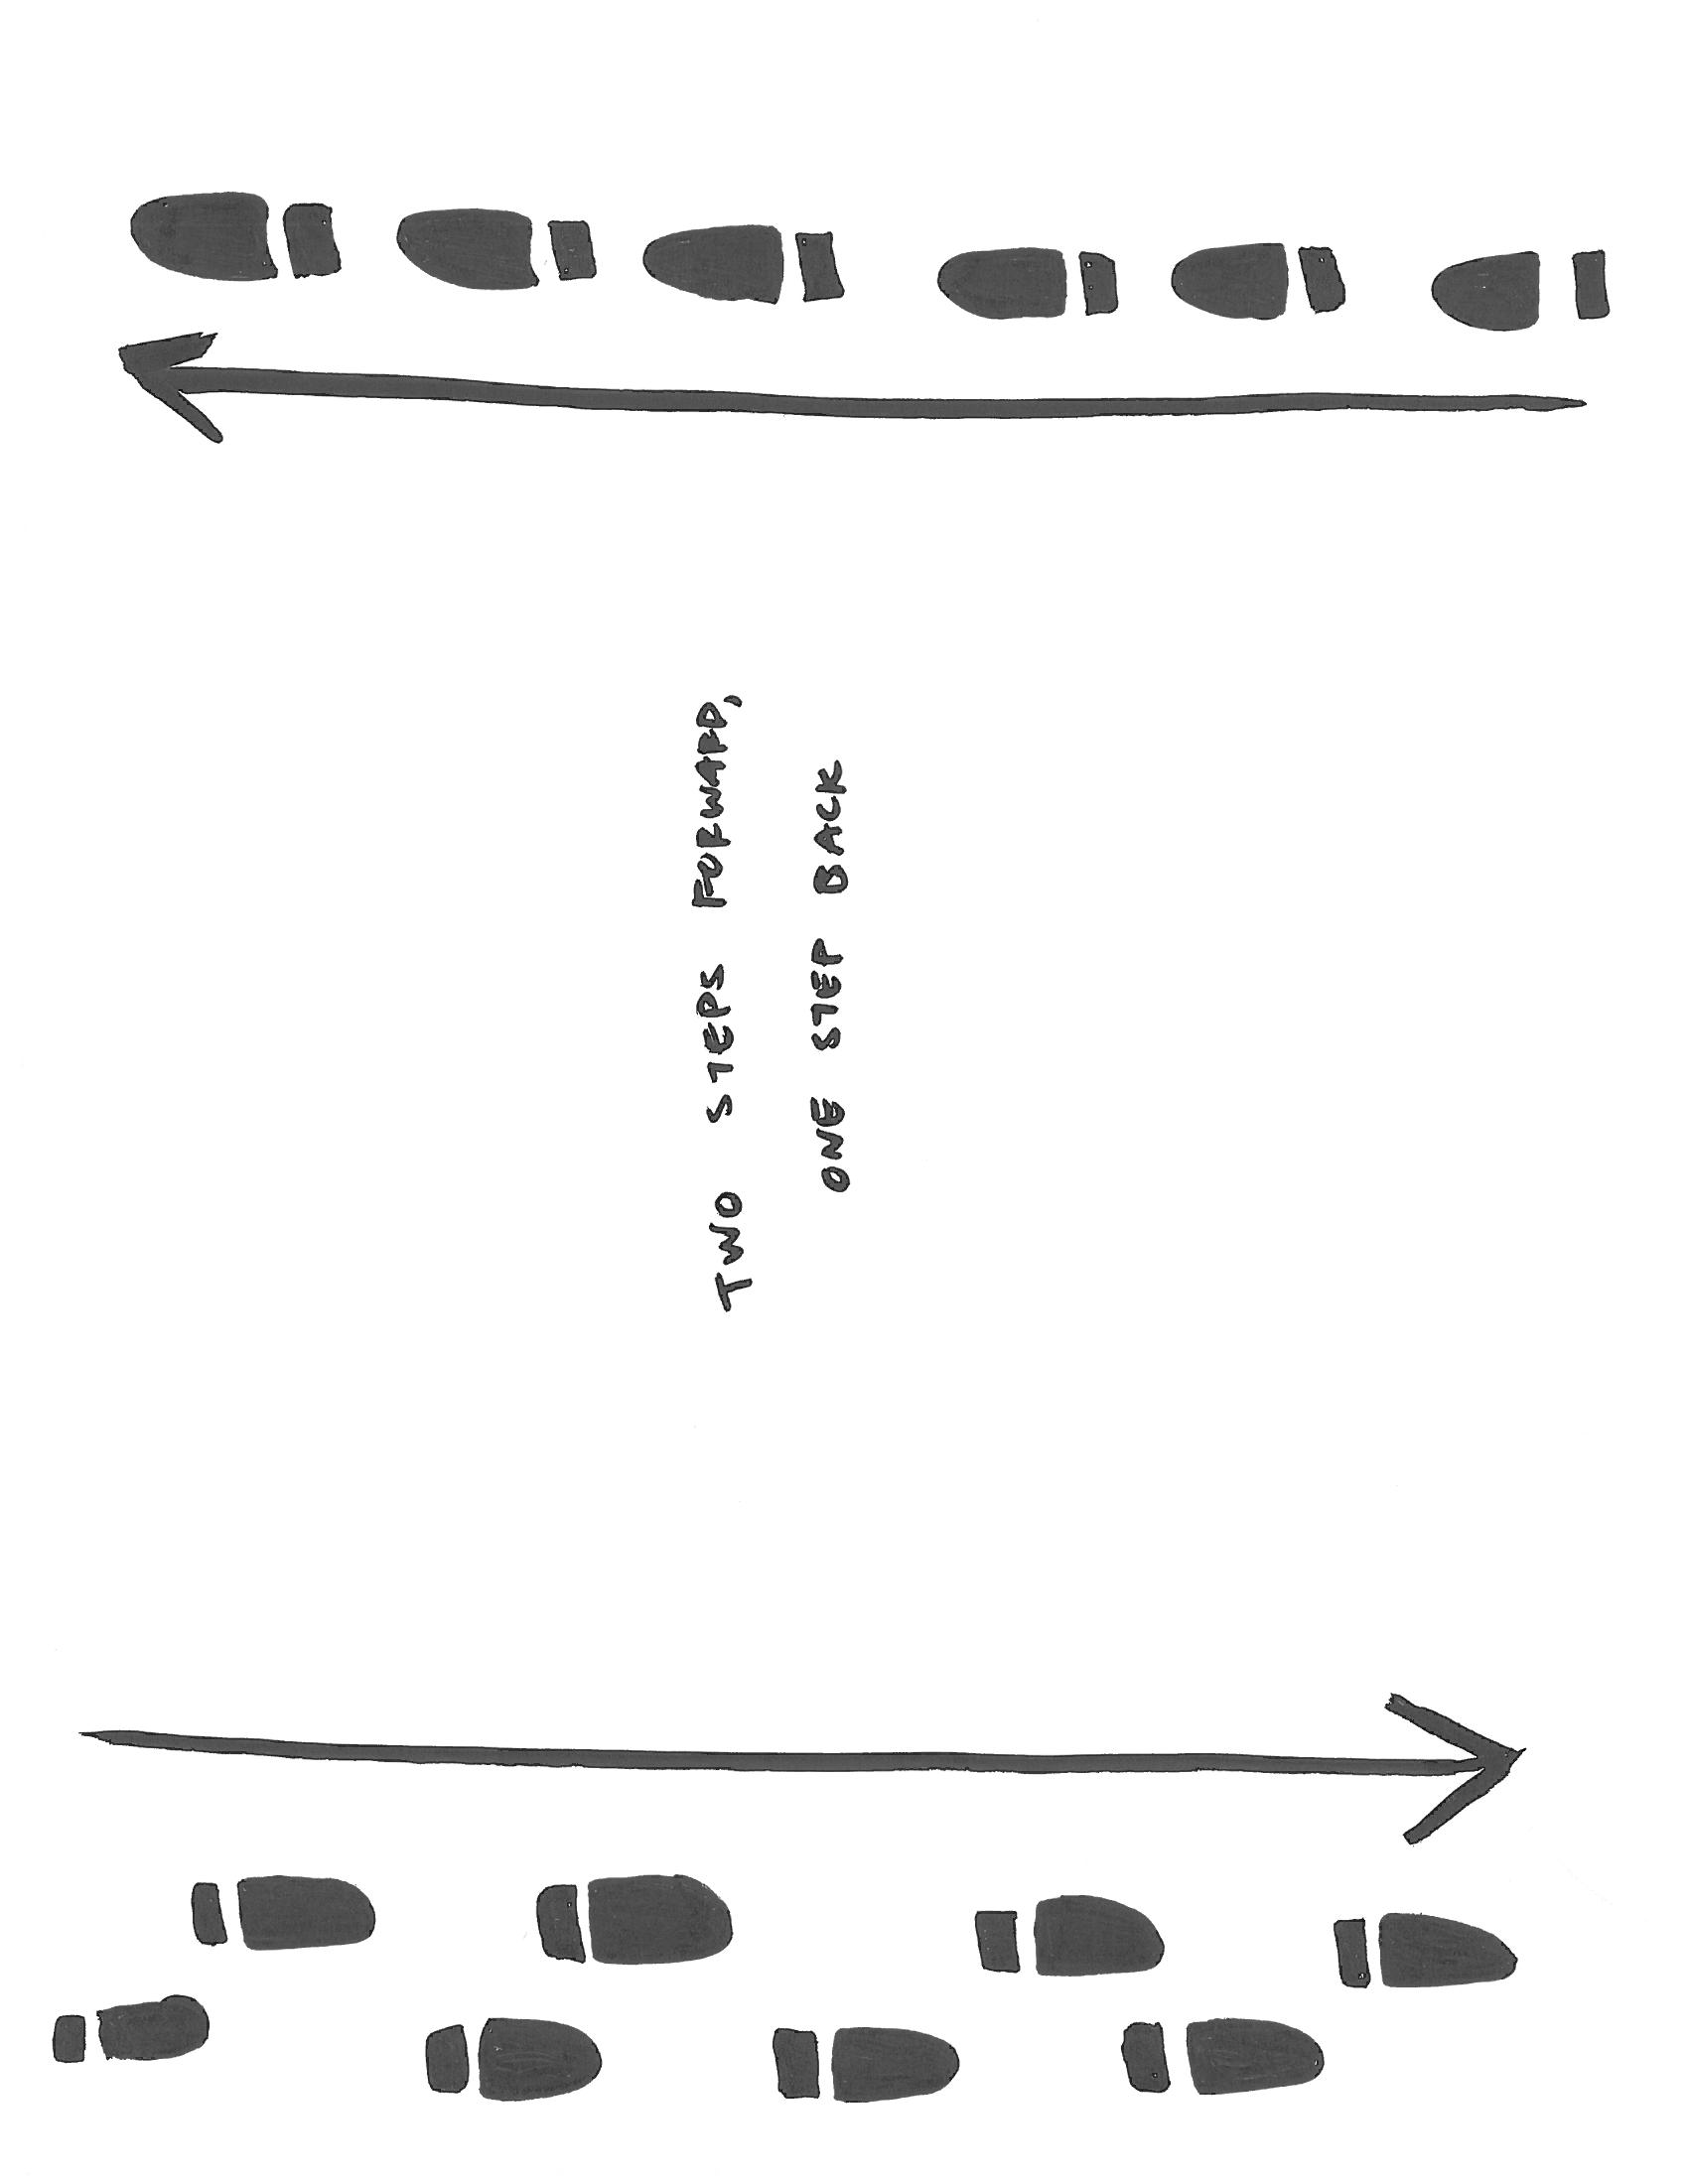 TWO STEPS FORWARD,
ONE STEP BACK